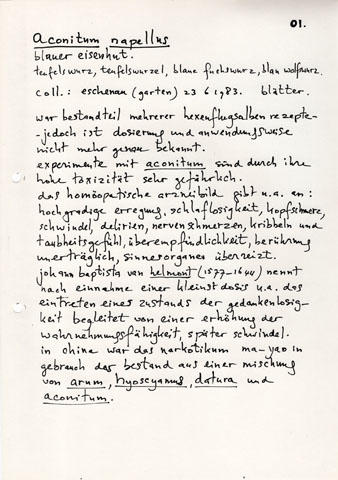 01.
aconitum napellus
blauer eisenhut.
teufelswurz, teufelswurzel, blaue fuchswurz, blau wolfswurz.
coll.: eschenau (garten) 23 6 1983. blätter.
war bestandteil mehrerer hexenflugsalben rezepte-
-jedoch ist dosierung und anwendungsweise
nicht mehr genau bekannt.
experimente mit aconitum sind durch ihre
hohe toxizität sehr gefährlich.
das homöopatische arzneibild gibt u.a. an:
hochgradige erregung, schlaflosigkeit, kopfschmerz,
schwindel, delirien, nervenschmerzen, kribbeln und
taubheitsgefühl, überempfindlichkeit, berührung
unerträglich, sinnesorgane überreizt.
johann baptista van helmont (1577-1644) nennt
nach einnahme einer kleinst dosis u.a. das
eintreten eines zustands der gedankenlosig-
keit begleitet von einer erhöhung der
wahrnehmungsfähigkeit, später schwindel.
in china war das narkotikum ma-yao in
gebrauch das bestand aus einer mischung
von arum, hyoscyamus, datura und
aconitum.